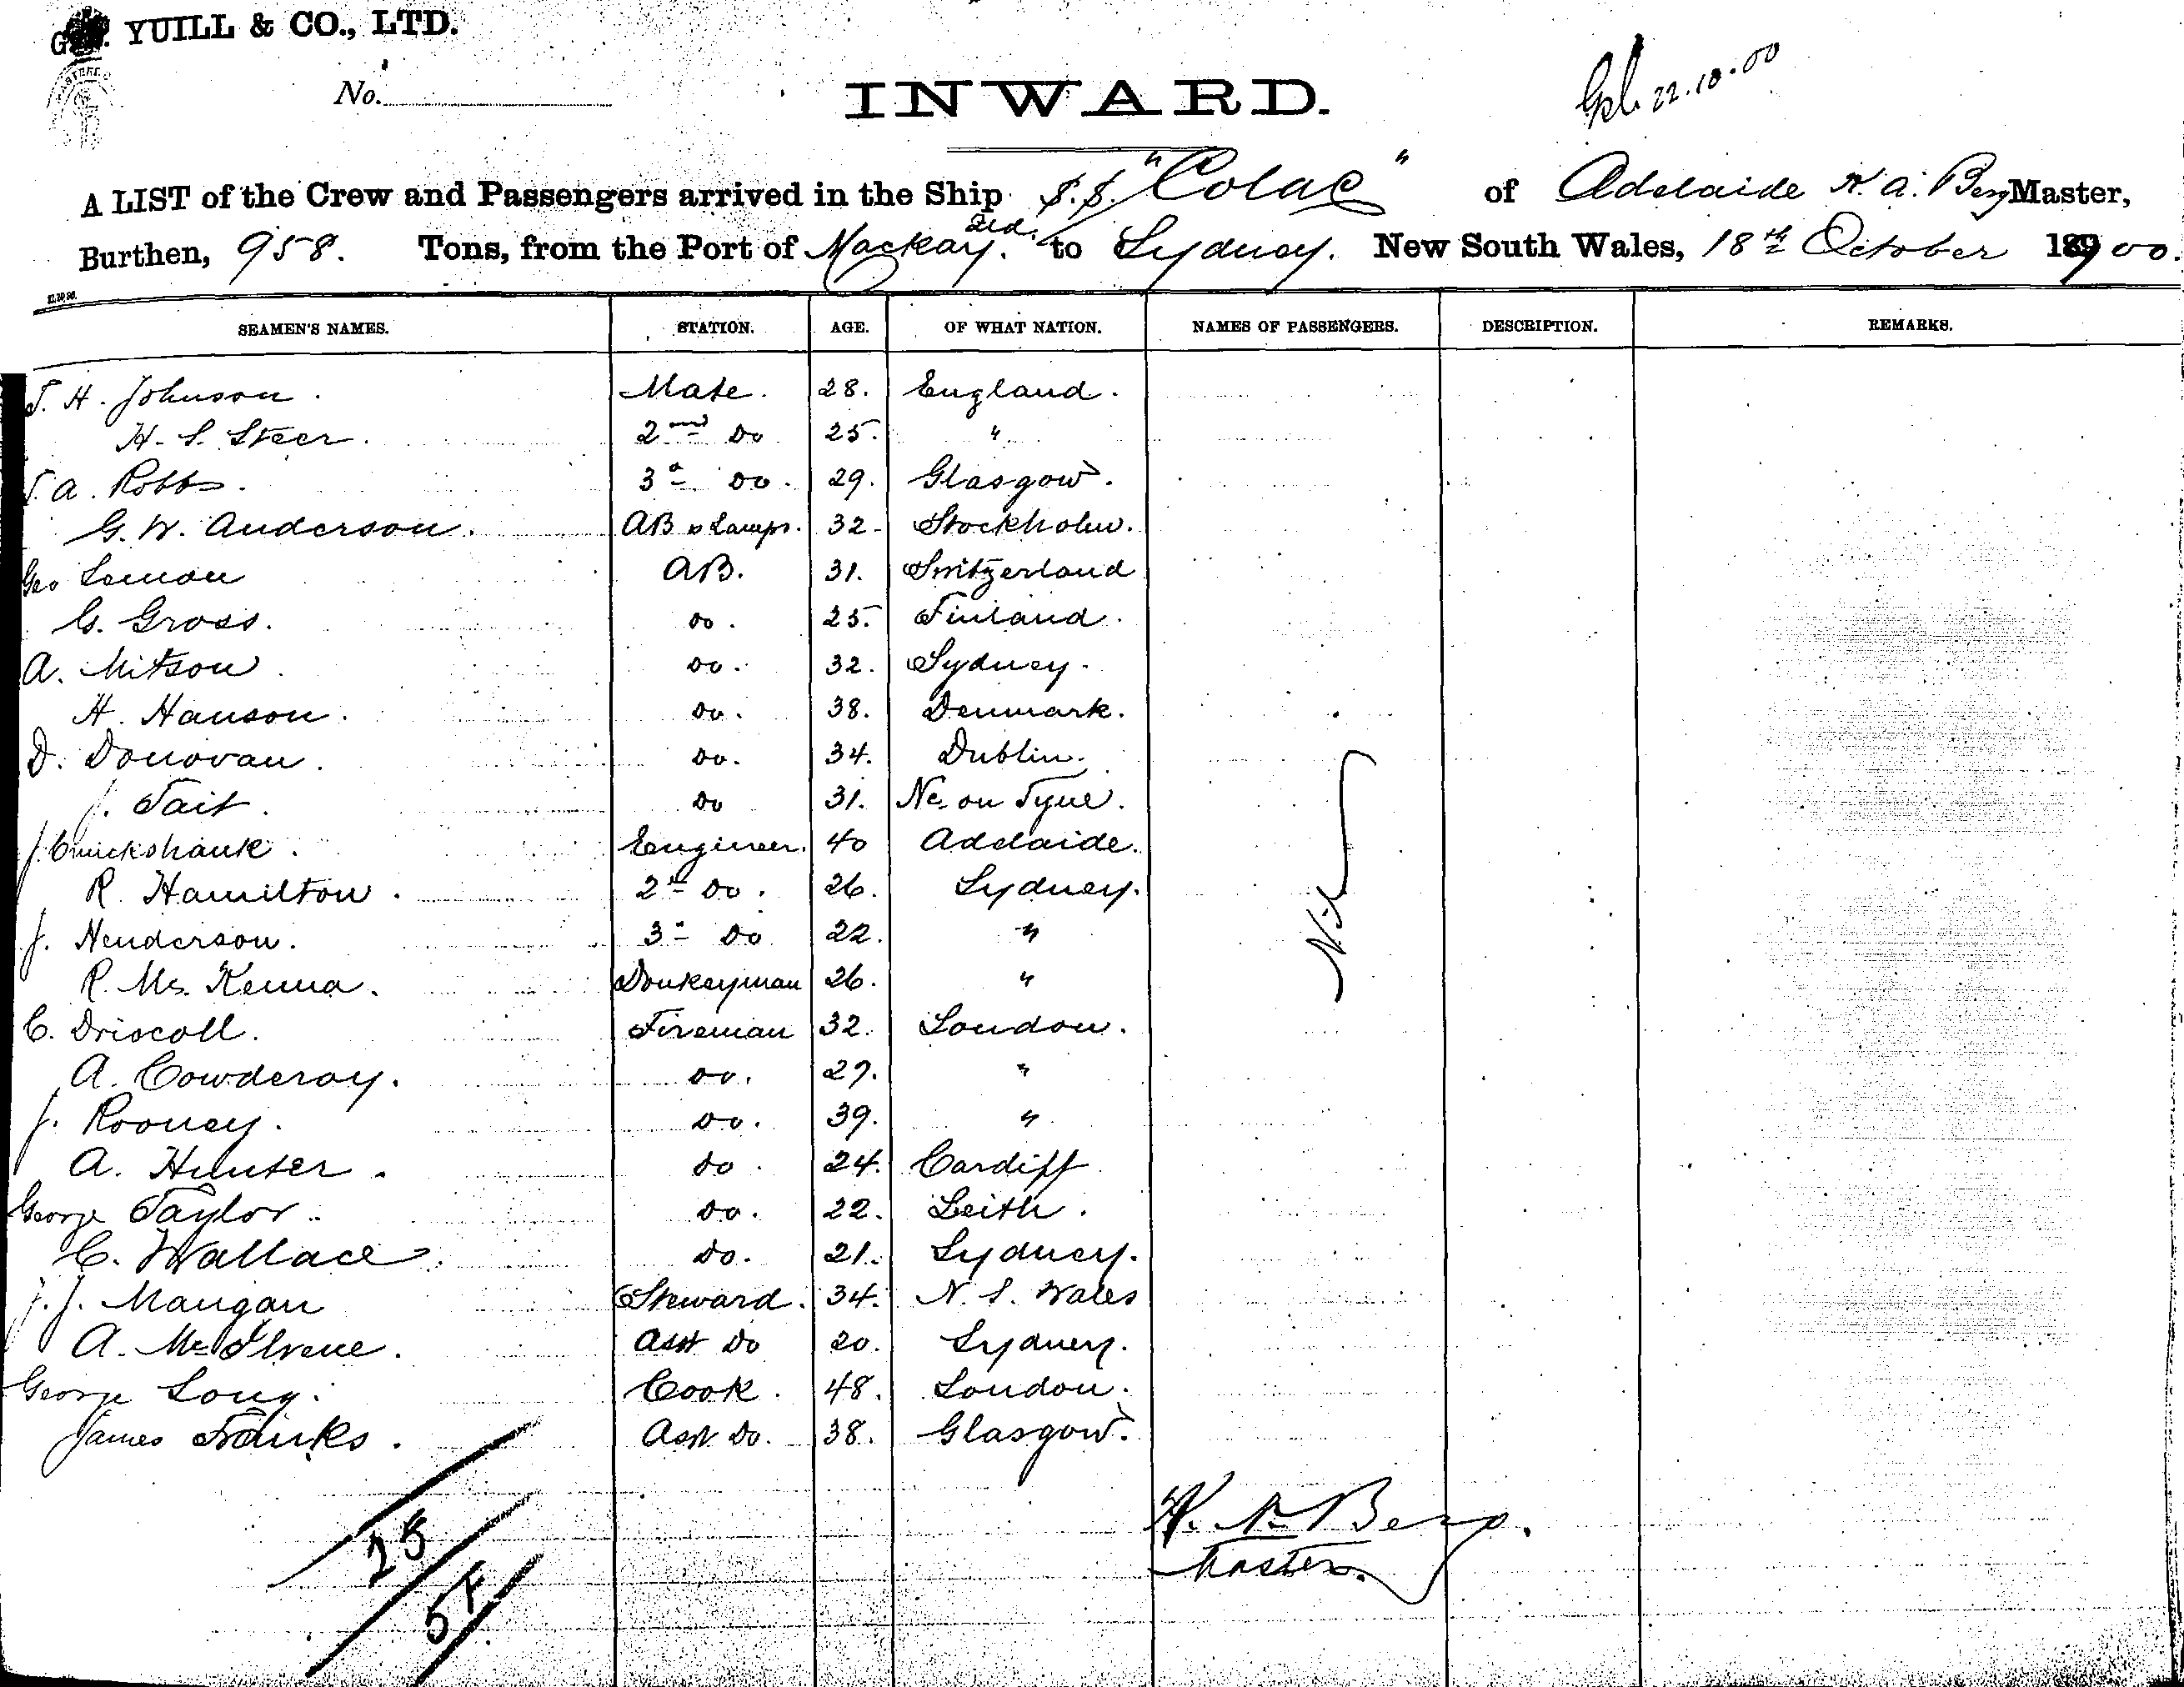 YUILL & CO., LTD.
No.
INWARD.
22.10.00
A LIST of the Crew and Passengers arrived in the Ship S.S. "Colac" of Adelaide A. Berg Master,
Burthen, 958. Tons, from the Port of Mackay. Qld. to Sydney. New South Wales, 18th October 1900.
SEAMEN'S NAMES. STATION. AGE. OF WHAT NATION. NAMES OF PASSENGERS. DESCRIPTION. REMARKS.
T. H. Johnson. Mate. 28. England.
H. S. Steer. 2nd Do 25. "
A. Robb. 3d Do. 29. Glasgow.
G. W. Anderson. AB & Lamps. 32. Stockholm.
Geo Leman AB. 31. Switzerland
G. Gross. Do. 25. Finland.
A. Mitson. Do. 32. Sydney.
H. Hanson. Do. 38. Denmark.
D. Donovan. Do. 34. Dublin.
J. Tait. Do 31. Nc. on Tyne.
J. Cruickshank. Engineer. 40 Adelaide.
R. Hamilton. 2d Do. 26. Sydney.
J. Henderson. 3d Do 22. "
R. Mc. Kenna. Donkeyman 26. "
C. Driscoll. Fireman 32. London.
A. Cowderoy. Do. 27. "
J. Rooney. Do. 39. "
A. Hunter. Do. 24. Cardiff
George Taylor. Do. 22. Leith.
C. Wallace. Do. 21. Sydney.
J. J. Mangan Steward. 34. N. S. Wales
A. McIlvene. Asst Do 20. Sydney.
George Long. Cook. 48. London.
James Franks. Asst Do. 38. Glasgow.
Nil
A. Berg.
Master.
25
54